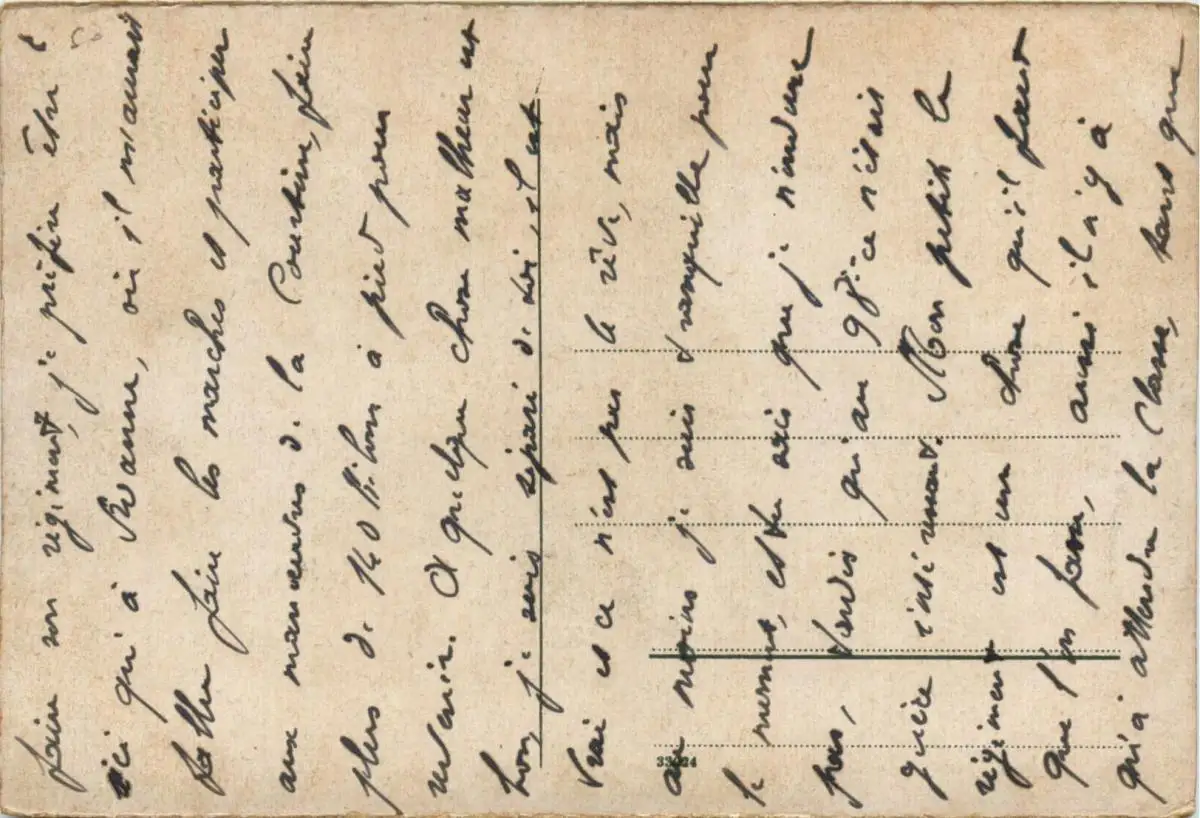 faire son régiment, je préfère être
ici qu'à Roanne, où il m'aurait
fallu faire les marches et participer
aux manœuvres de la Courtine, faire
plus de 140 kilom à pied pour
revenir. A quelque chose malheur est
bon, je suis séparé de toi, il est
vrai et ce n'est pas le rêve, mais
au moins je suis tranquille pour
le moment, et
pas, tandis qu'au 98e ce n'était
guère intéressant. Mon petit le
régiment est une chose qu'il faut
que l'on fasse, aussi il n'y a
qu'à attendre la Classe, sans que
33424